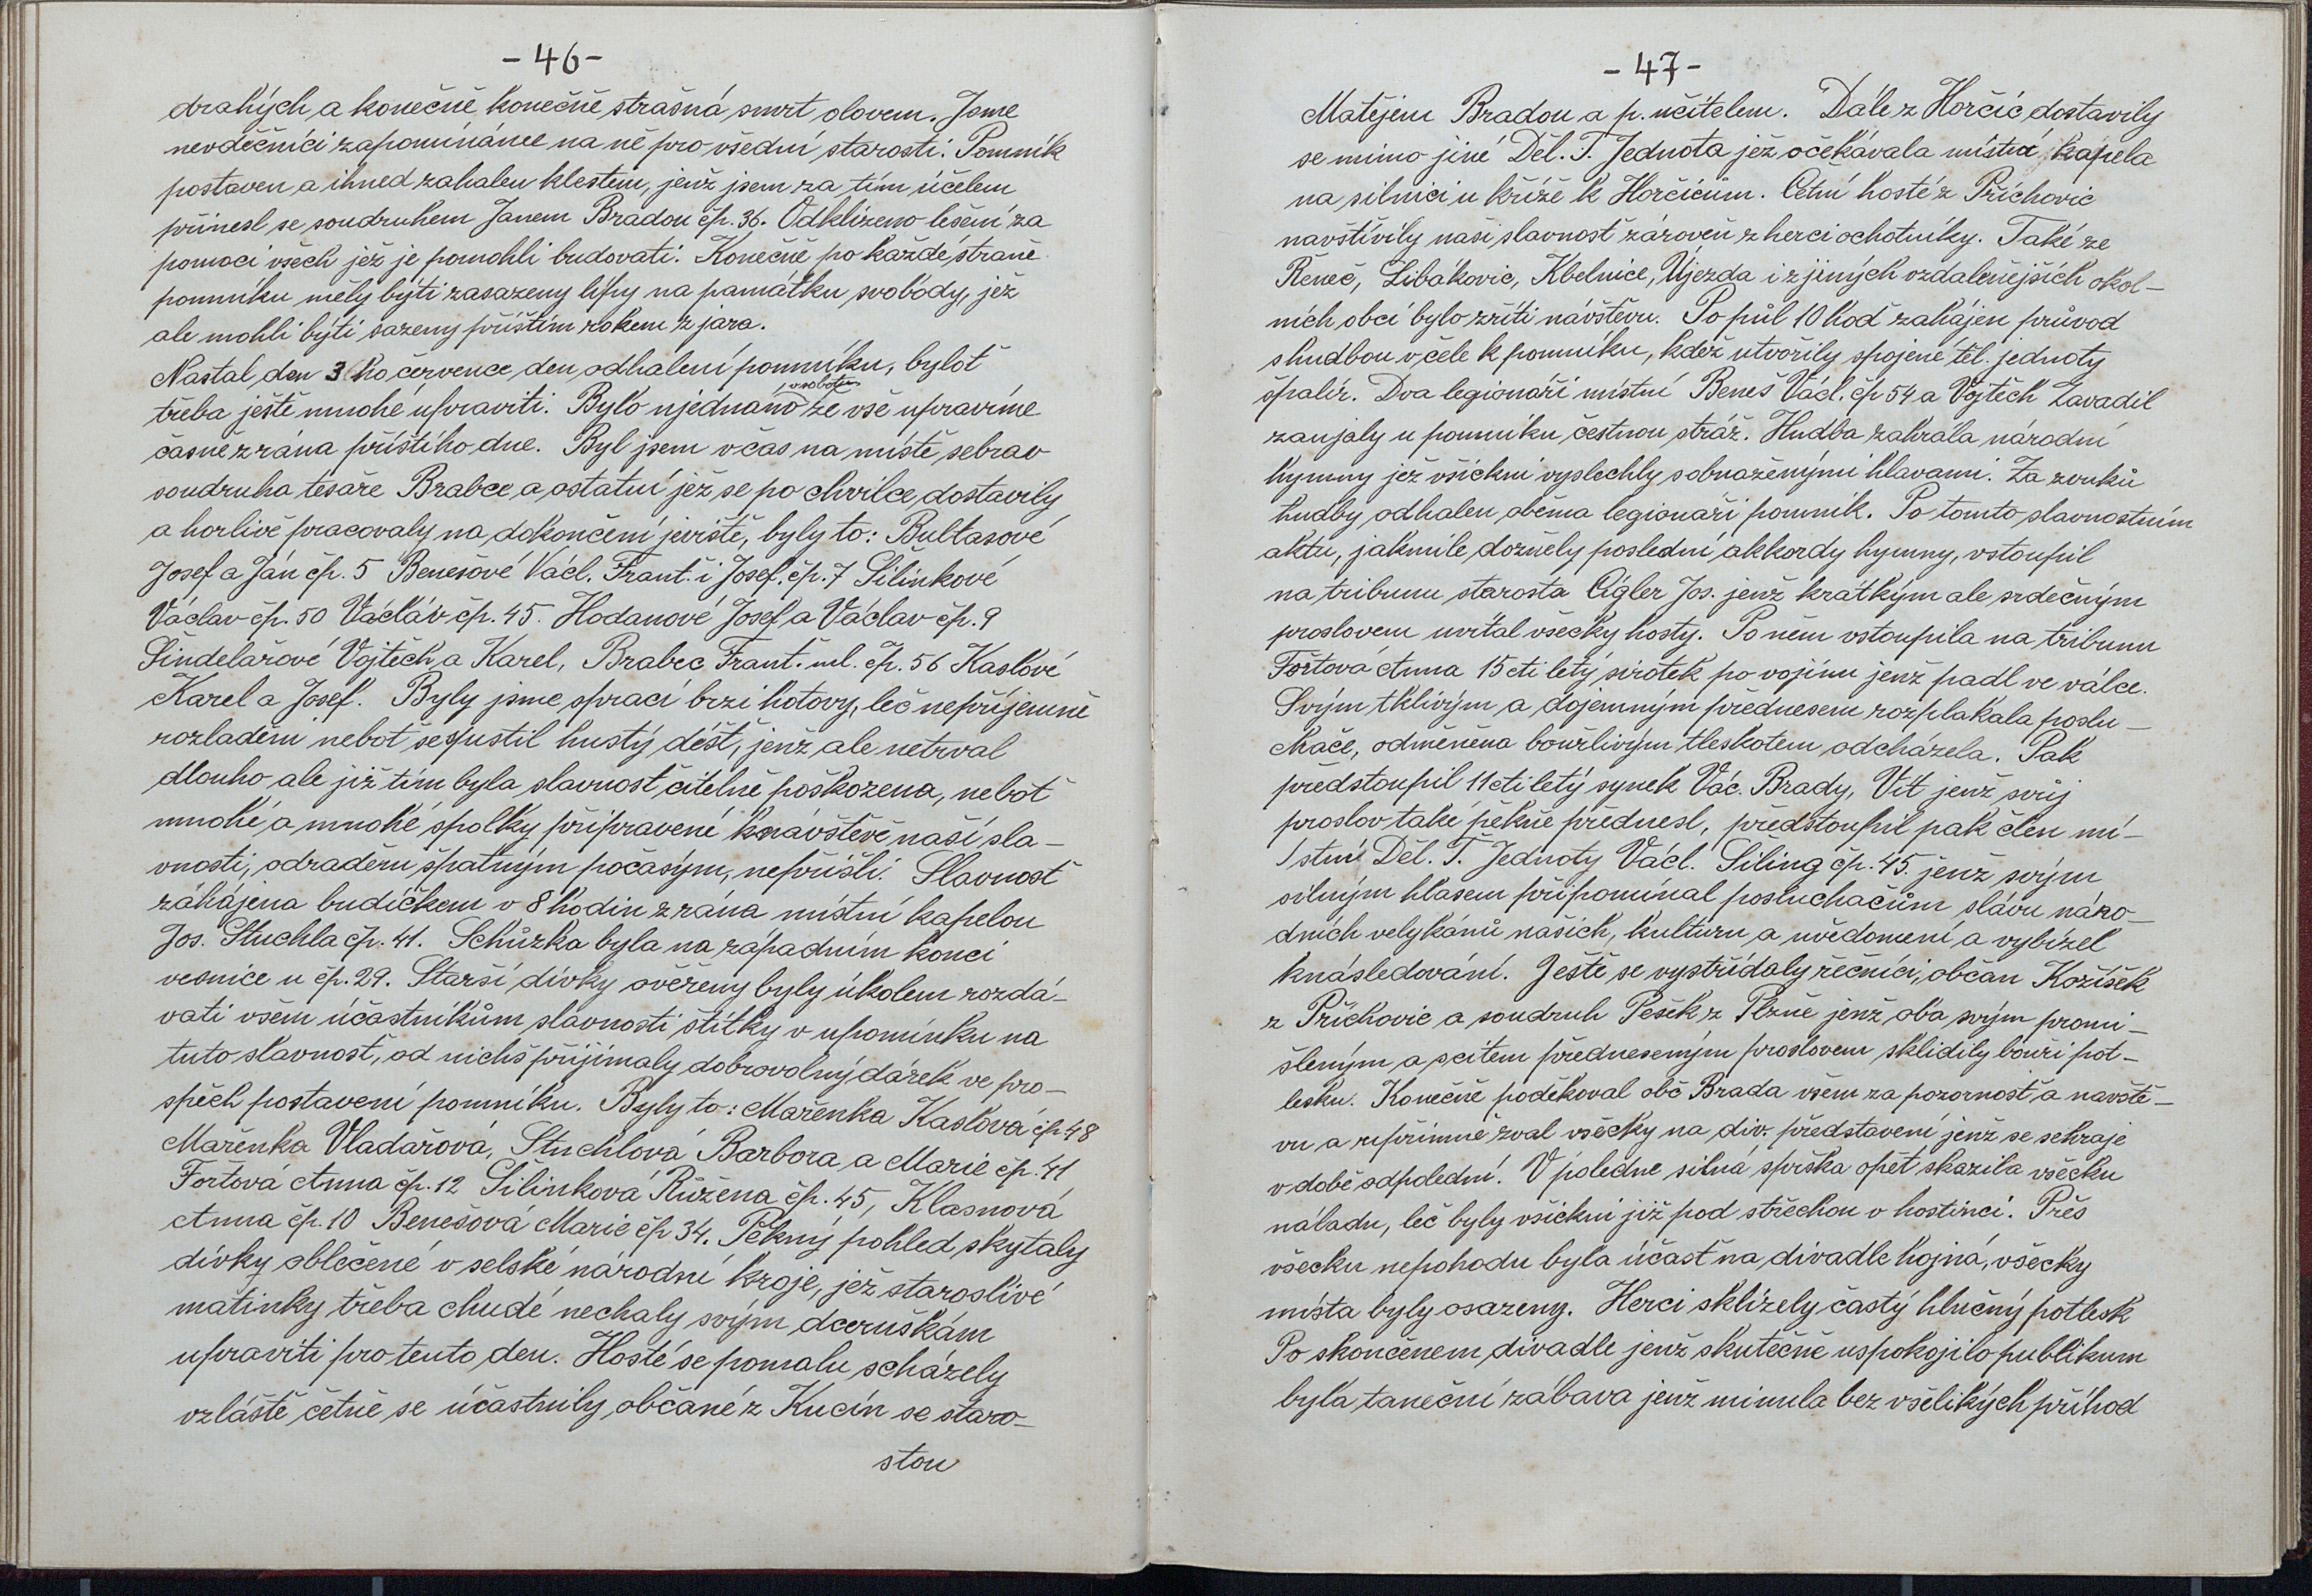 - 46 -
drahých a konečně konečně strašná smrt olovem. Jsme
nevděčníci zapomínáme na ně pro všední starosti. Pomník
postaven a ihned zahalen klestem, jenž jsem za tím účelem
přinesl se soudruhem Janem Bradou čp. 36. Odklizeno lešení za
pomoci všech jež je pomohli budovati. Konečně po každé straně
pomníku měly býti zasazeny lípy na památku svobody, jež
ale mohli býti sazeny příštím rokem z jara.
Nastal den 3 ho července den odhalení pomníku, byloť
v sobotu
třeba ještě mnohé upraviti. Bylo ujednáno že vše upravíme
časně z rána příštího dne. Byl jsem včas na místě sebrav
soudruha tesaře Brabce a ostatní jež se po chvilce dostavily
a horlivě pracovaly na dokončení jeviště, byly to: Bultasové
Josef a Ján čp. 5 Benešové Václ. Frant. i Josef. čp. 7 Šilinkové
Václav čp. 50 Václáv čp. 45. Hodanové Josef a Václav čp. 9
Šindelářové Vojtěch a Karel, Brabec Frant. ml. čp. 56 Kaslové
Karel a Josef. Byly jsme s prací brzi hotovy, leč nepříjemně
rozladěni neboť se spustil hustý déšť, jenž ale netrval
dlouho ale již tím byla slavnost citelně poškozena, neboť
mnohé a mnohé spolky připravené k návštěvě naší sla-
vnosti, odraděni špatným počasým, nepřišli. Slavnost
záhájena budíčkem v 8 hodin z rána místní kapelou
Jos. Stuchla čp. 41. Schůzka byla na západním konci
vesnice u čp. 29. Starší dívky ověřeny byly úkolem rozdá-
vati všem účastníkům slavnosti štítky v upomínku na
tuto slavnost, od nichš přijímaly dobrovolný dárek ve pro-
spěch postavení pomníku. Byly to: Mařenka Kaslová čp 48
Mařenka Vladařová, Stuchlová Barbora a Marie čp. 41
Fořtová Anna čp. 12 Šilinková Růžena čp. 45, Klasnová
Anna čp. 10 Benešová Marie čp 34. Pěkný pohled skytaly
dívky oblečené v selské národní kroje, jež staroslivé
matinky třeba chudé nechaly svým dceruškám
upraviti pro tento den. Hosté se pomalu scházely
vzláště četně se účastnily občané z Kucín se staro-
stou
- 47 -
Matějem Bradou a p. učitelem. Dále z Horčic dostavily
se mimo jiné Děl. T. Jednota jež očekávala místní kapela
na silnici u kříže k Horčicům. Četní hosté z Příchovic
navštívily naši slavnost zároveň z herci ochotníky. Také ze
Řeneč, Libákovic, Kbelnice, Újezda i z jiných vzdalenějších okol-
ních obcí bylo zříti návštěvu. Po půl 10 hod zahájen průvod
s hudbou v čele k pomníku, kdež utvořily spojené těl. jednoty
špalír. Dva legionáři místní Beneš Václ. čp 54 a Vojtěch Zavadil
zaujaly u pomníku čestnou stráž. Hudba zahrála národní
hymny jež všickni vyslechly s obnaženými hlavami. Za zvuků
hudby odhalen oběma legionáři pomník. Po tomto slavnostním
aktu, jakmile dozněly poslední akkordy hymny, vstoupil
na tribunu starosta Cígler Jos. jenž krátkým ale srdečným
proslovem uvítal všecky hosty. Po něm vstoupila na tribunu
Fořtová Anna 15cti letý sirotek po vojínu jenž padl ve válce.
Svým tklivým a dojemným přednesem rozplakala poslu-
chače, odměněna bouřlivým tleskotem odcházela. Pak
předstoupil 11cti letý synek Vác. Brady, Vít jenž svůj
proslov také pěkně přednesl, předstoupil pak člen mí-
stní Děl. T. Jednoty Václ. Siling čp. 45. jenž svým
silným hlasem připomínal posluchačům slávu náro-
dních velykánů našich, kulturu a uvědomení a vybízel
k následování. Ještě se vystřídaly řečníci, občan Kožíšek
z Příchovic a soudruh Pešek z Plzně jenž oba svým promi-
šleným a scitem předneseným proslovem sklidily bouři pot-
lesku. Konečně poděkoval obč Brada všem za pozornost a navště-
vu a upřímně zval všecky na div. představení jenž se sehraje
v době odpolední. V poledne silná sprška opět skazila všecku
náladu, leč byly všickni již pod střechou v hostinci. Přes
všecku nepohodu byla účast na divadle hojná, všecky
místa byly osazeny. Herci sklízely častý hlučný potlesk
Po skončenem divadle jenž skutečně uspokojilo publikum
byla taneční zábava jenž minula bez všelikých příhod